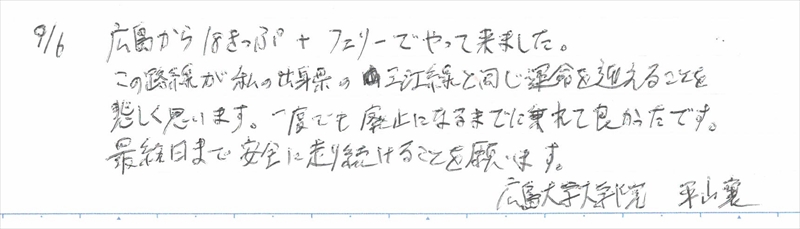 9/6 広島から18きっぷ+フェリーでやって来ました。
この路線が私の出身県の三江線と同じ運命を迎えることを
悲しく思います。一度でも廃止になるまでに乗れて良かったです。
最終日まで安全に走り続けることを願います。
広島大学大学院 平山寛